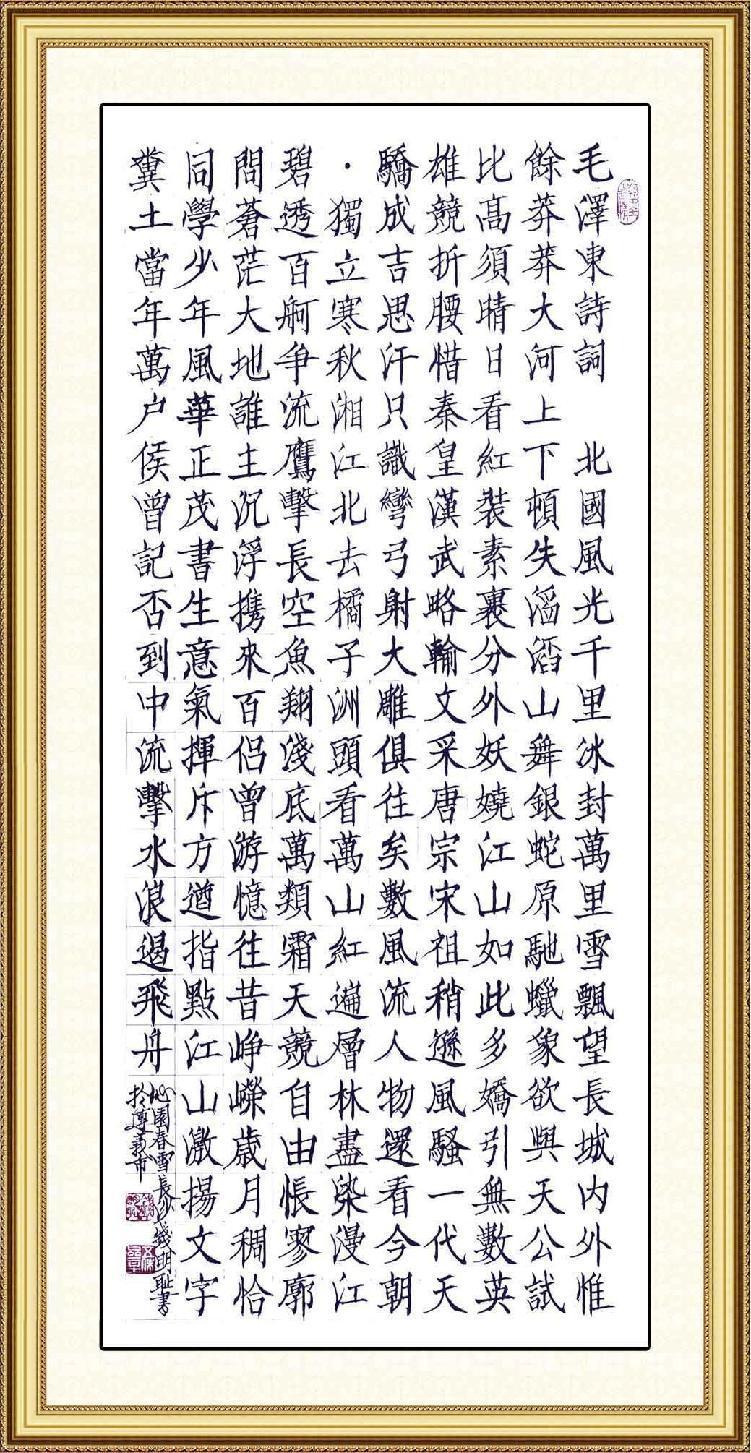 毛澤東詩詞　北國風光千里冰封萬里雪飄望長城内外惟
餘莽莽大河上下頓失滔滔山舞銀蛇原馳蠟象欲與天公試
比高須晴日看紅裝素裹分外妖嬈江山如此多嬌引無數英
雄競折腰惜秦皇漢武略輸文采唐宗宋祖稍遜風騷一代天
驕成吉思汗只識彎弓射大雕俱往矣數風流人物還看今朝
·獨立寒秋湘江北去橘子洲頭看萬山紅遍層林盡染漫江
碧透百舸争流鷹擊長空魚翔淺底萬類霜天競自由悵寥廓
問蒼茫大地誰主沉浮携來百侣曾游憶往昔崢嶸歲月稠恰
同學少年風華正茂書生意氣揮斥方遒指點江山激揚文字
糞土當年萬户侯曾記否到中流擊水浪遏飛舟
沁園春雪長沙書
於遵義市